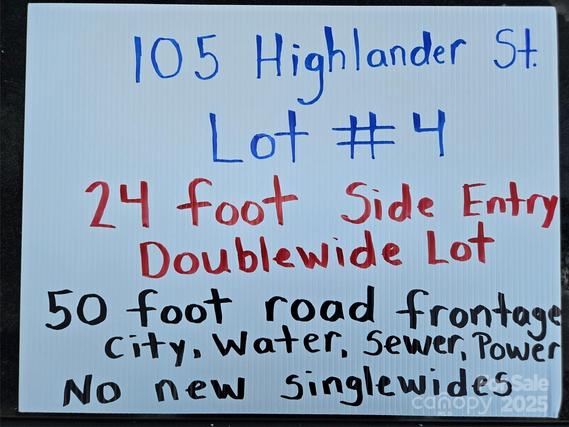 105 Highlander St.
Lot #4
24 foot Side Entry
Doublewide Lot
50 foot road frontage
City, Water, Sewer, Power
No new singlewides
For Sale
canopy 2025